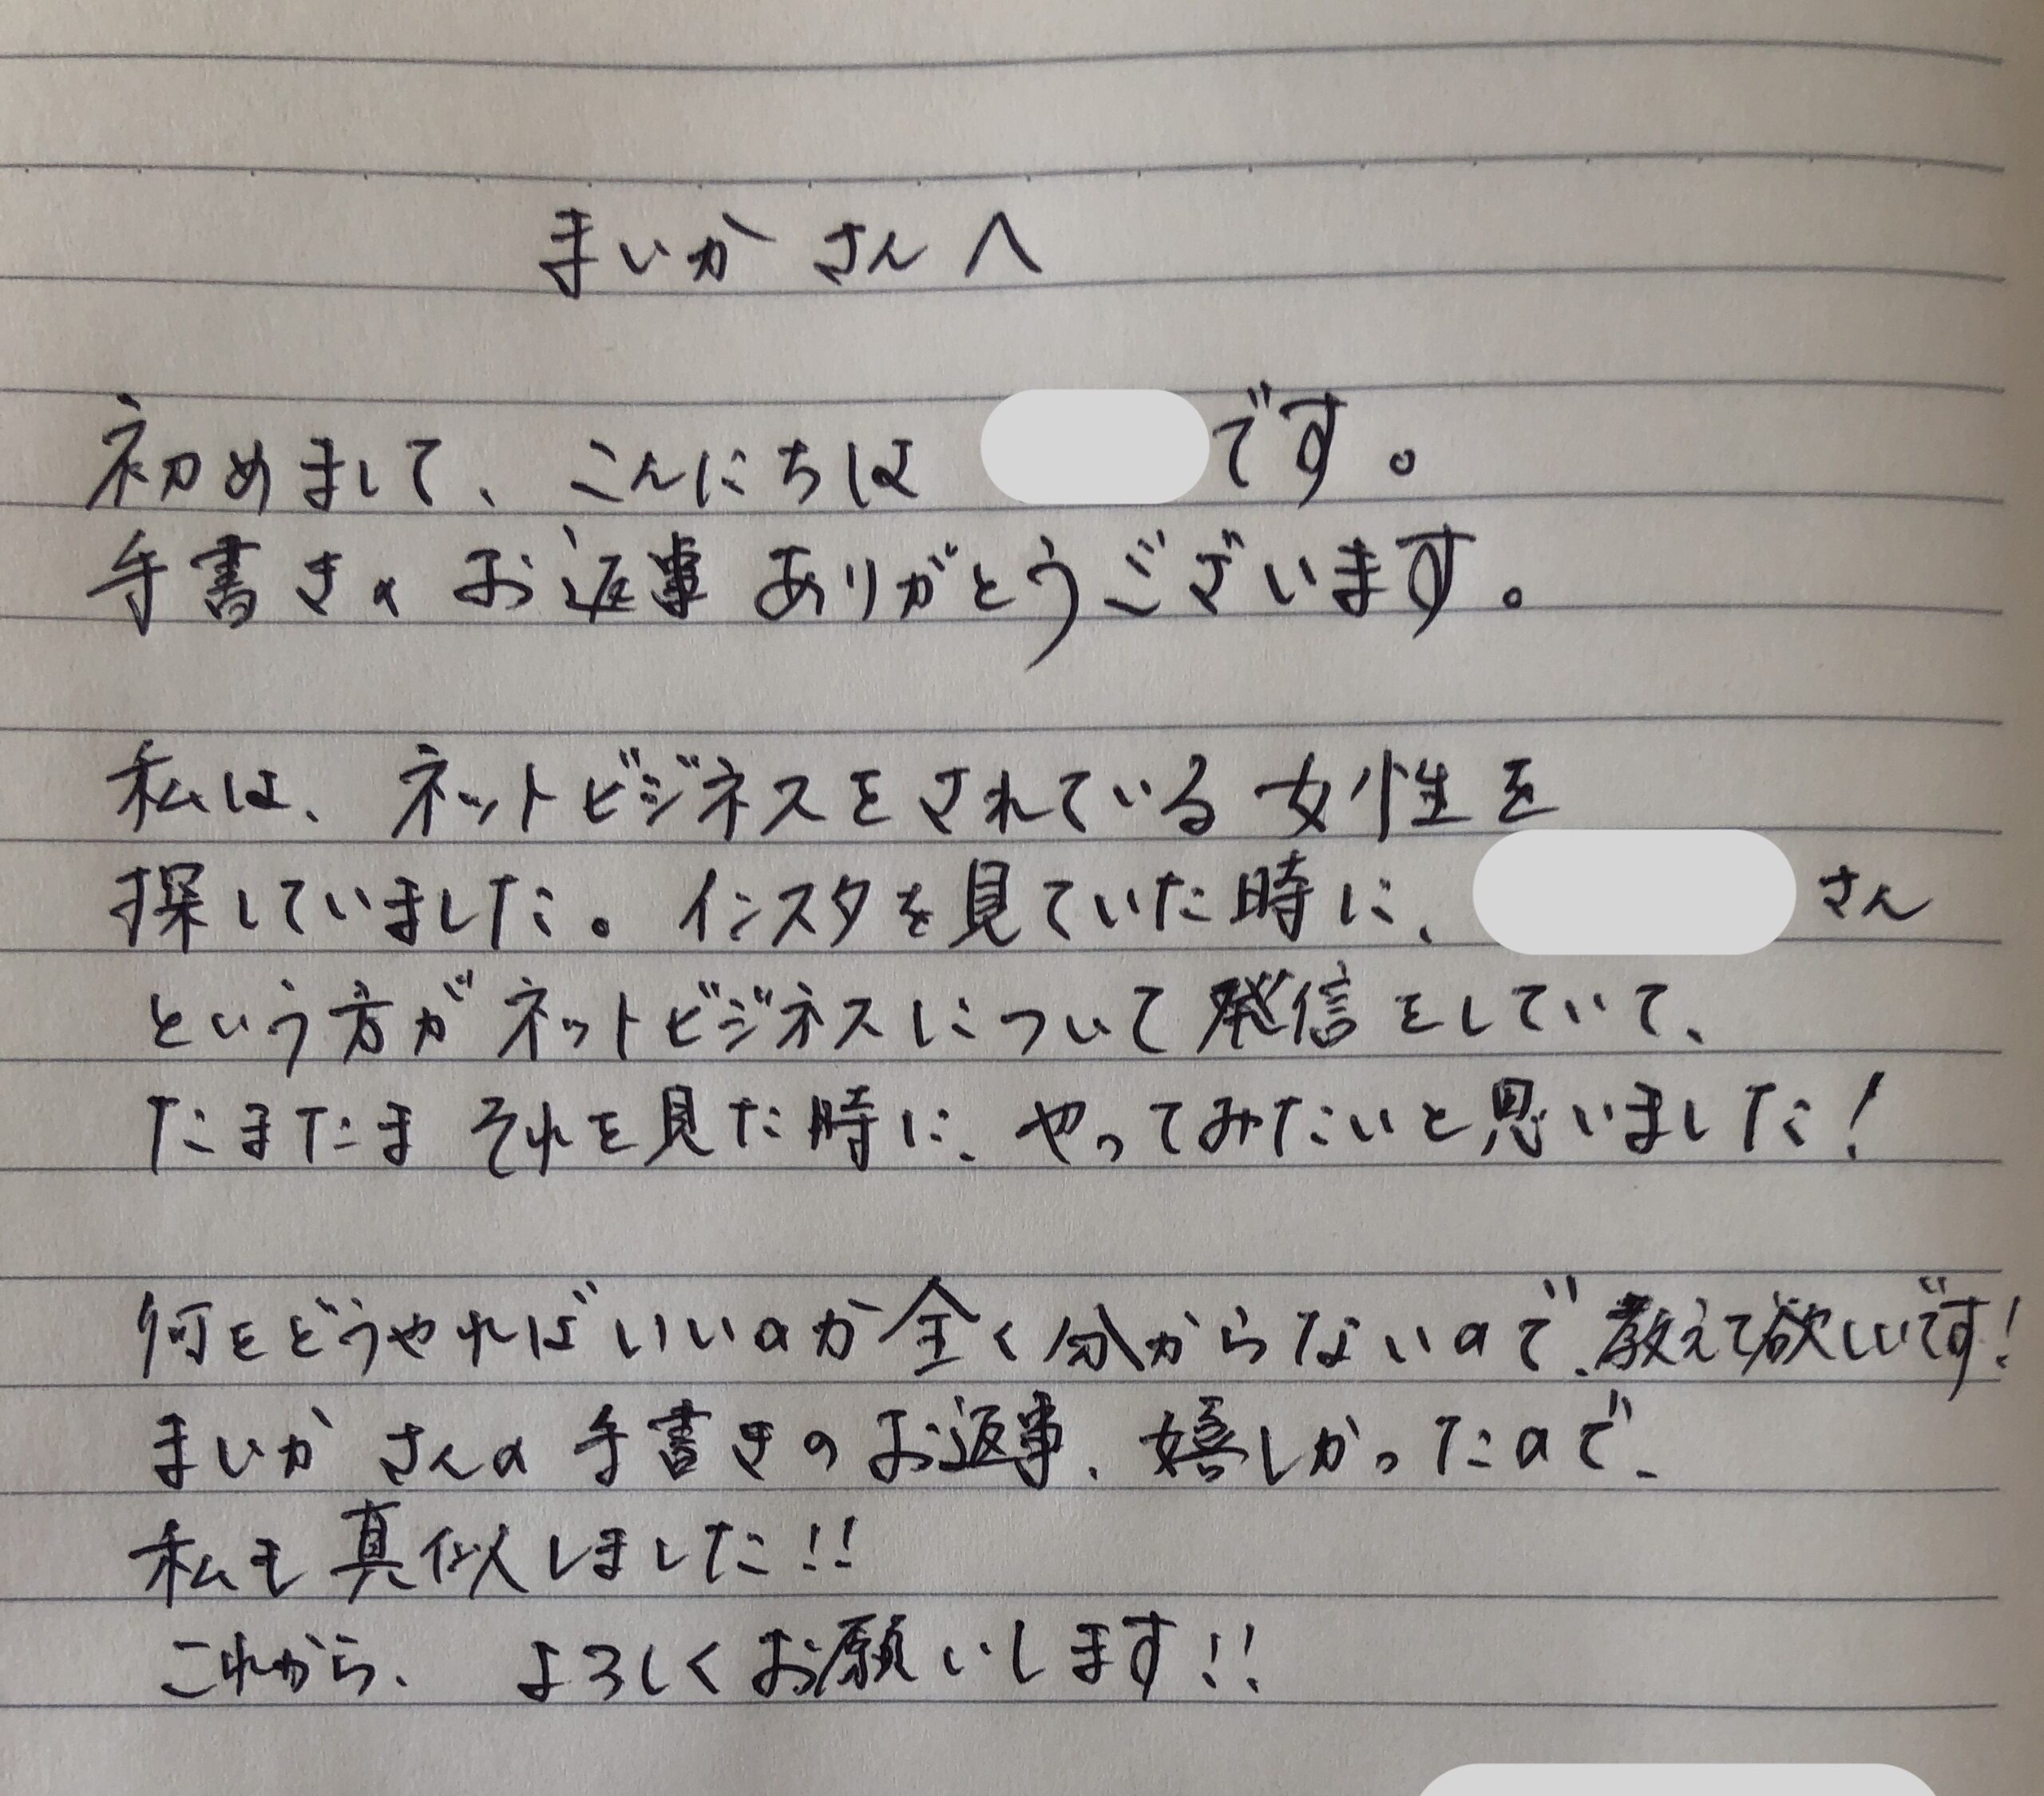 まいかさんへ
初めまして、こんにちは です。
手書きのお返事ありがとうございます。
私は、ネットビジネスをされている女性を
探していました。インスタを見ていた時に、 さん
という方がネットビジネスについて発信をしていて、
たまたまそれを見た時に、やってみたいと思いました!
何をどうやればいいのか全く分からないので、教えて欲しいです!
まいかさんの手書きのお返事、嬉しかったので、
私も真似しました!!
これから、よろしくお願いします!!